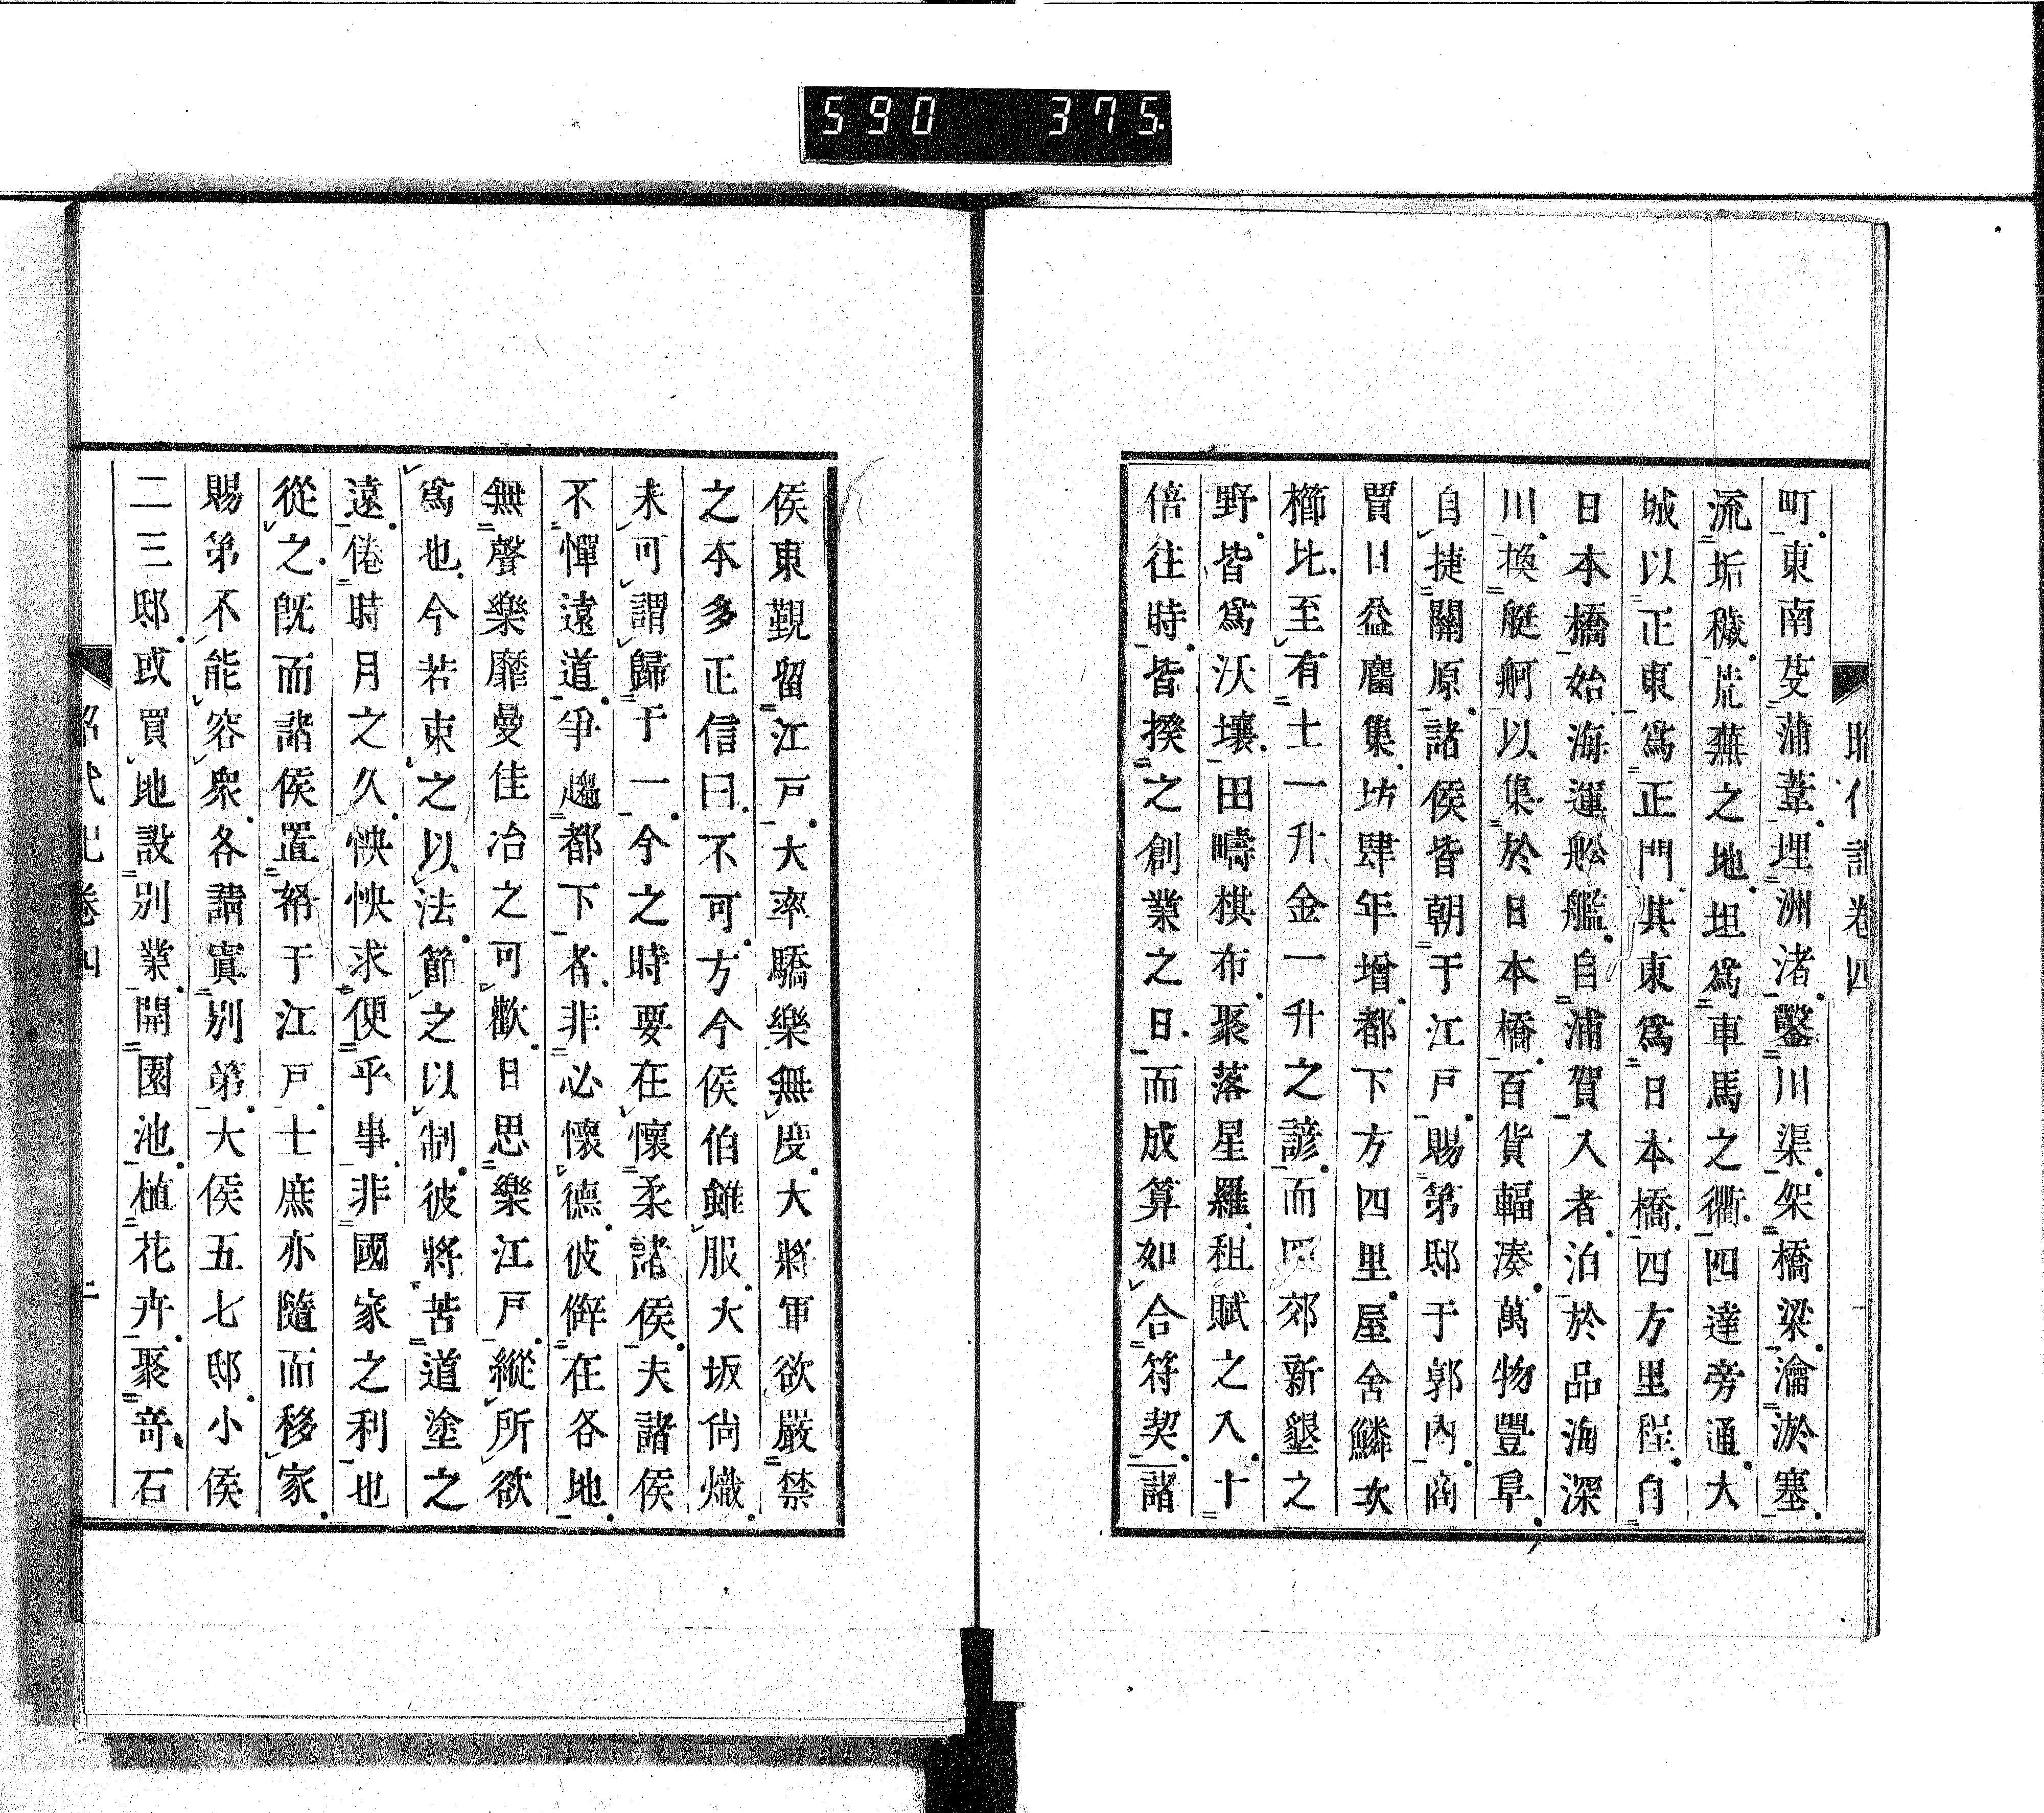 590 375
昭代記卷四
町東南芟蒲葦埋洲渚鑿川渠架橋梁瀹淤塞
流垢穢荒蕪之地坦爲車馬之衢四達旁通大
城以正東爲正門其東爲日本橋四方里程自
日本橋始海運船艦自浦賀入者泊於品海深
川換艇舸以集於日本橋百貨輻湊萬物豐阜
自捷關原諸侯皆朝于江戸賜第邸于郭內商
賈日益麕集坊肆年增都下方四里屋舍鱗次
櫛比至有土一升金一升之諺而四郊新墾之
野皆爲沃壤田疇棋布聚落星羅租賦之入十
倍往時皆揆之創業之日而成算如合符契諸
侯東覲留江戸大率驕樂無度大將軍欲嚴禁
之本多正信曰不可方今侯伯雖服大坂尙熾
未可謂歸于一今之時要在懷柔諸侯夫諸侯
不憚遠道爭趨都下者非必懷德彼僻在各地
無聲樂靡曼佳冶之可歡日思樂江戸縱所欲
爲也今若束之以法節之以制彼將苦道塗之
遠倦時月之久怏怏求便乎事非國家之利也
從之旣而諸侯置帑于江戸士庶亦隨而移家
賜第不能容衆各請賓別第大侯五七邸小侯
二三邸或買地設別業開園池植花卉聚奇石
昭代記卷四